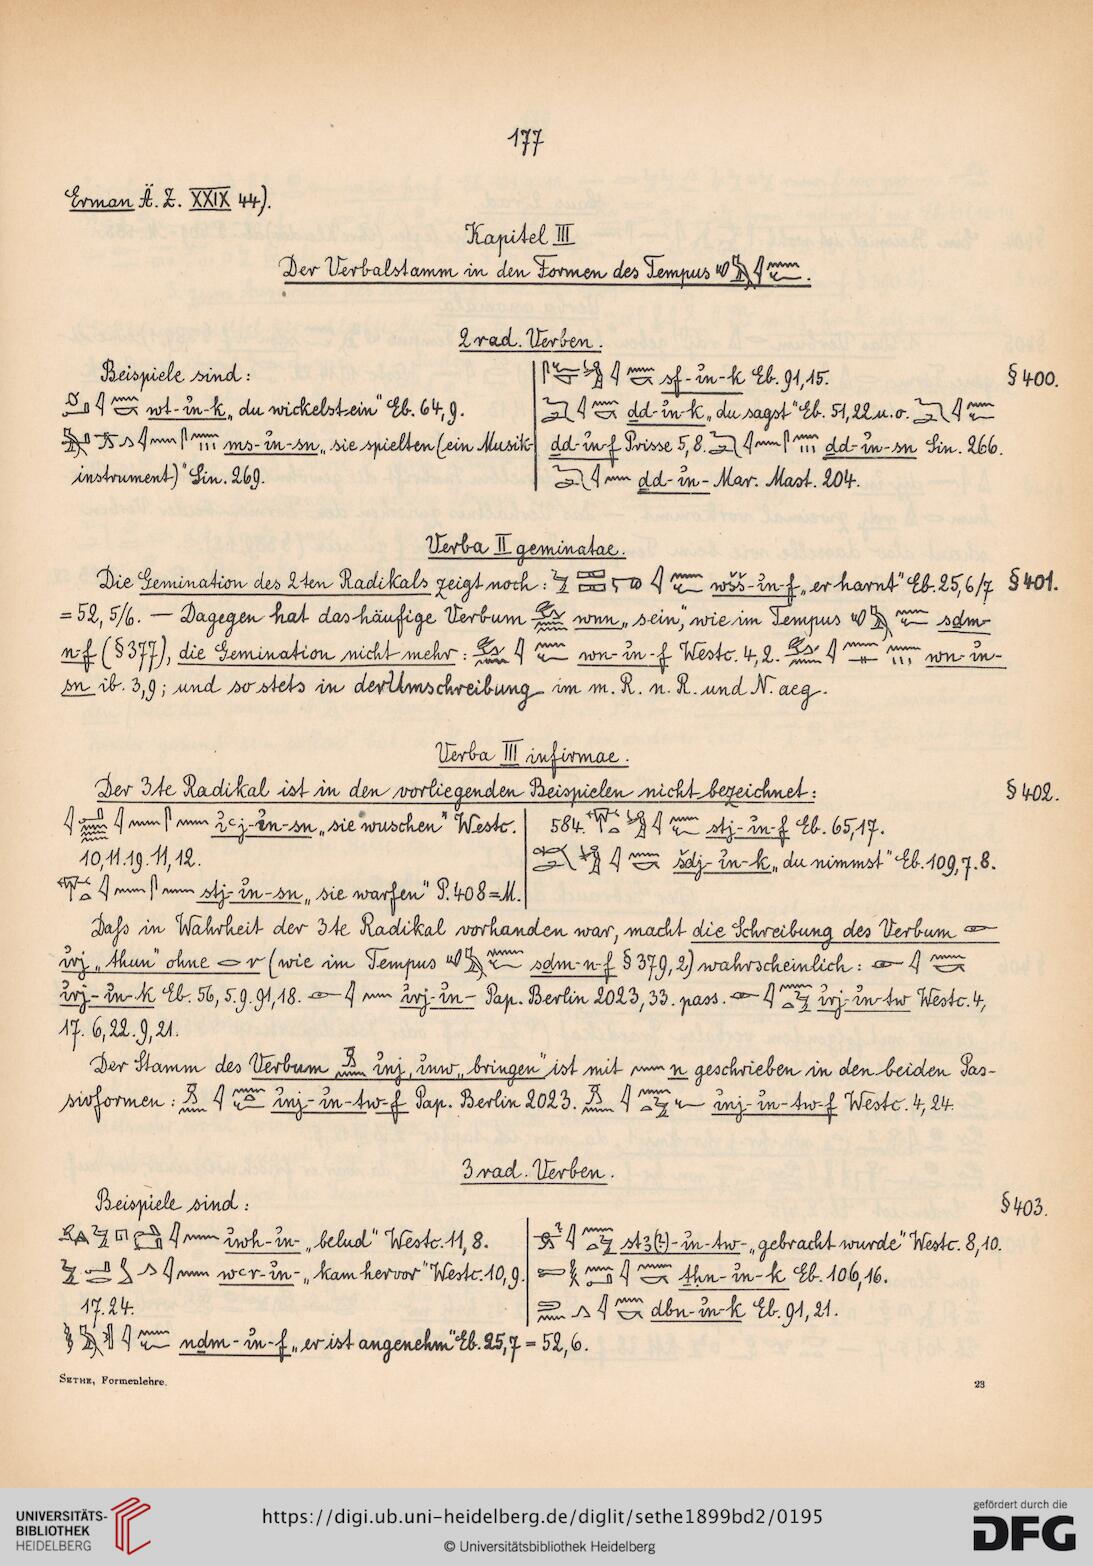 177
Erman Ä. Z. XXIX 44).
Kapitel III
Der Verbalstamm in den Formen des Tempus
2 rad. Verben.
Beispiele sind:
wt-i͗n-k „du wickelst ein" Eb. 64,9.
ms-i͗n-sn „sie spielten (ein Musik-
instrument)" Sin. 269.
sf-i͗n-k Eb. 91,15. § 400.
dd-i͗n-k „du sagst" Eb. 51,22 u. o.
dd-i͗n-f Prisse 5,8. dd-i͗n-sn Sin. 266.
dd-i͗n- Mar. Mast. 204.
Verba II geminatae.
Die Gemination des 2ten Radikals zeigt noch: wšš-i͗n-f „er harnt" Eb. 25,6/7 § 401.
= 52, 5/6. — Dagegen hat das häufige Verbum wnn „sein", wie im Tempus sḏm-
n-f (§ 377), die Gemination nicht mehr: wn-i͗n-f Westc. 4,2. wn-i͗n-
sn ib. 3,9; und so stets in der Umschreibung im m. R. n. R. und N. aeg.
Verba III infirmae.
Der 3te Radikal ist in den vorliegenden Beispielen nicht bezeichnet: § 402.
i͗ꜥj-i͗n-sn „sie wuschen" Westc.
10,11.19. 11,12.
stj-i͗n-sn „sie warfen" P. 408 = M.
584. stj-i͗n-f Eb. 65,17.
šdj-i͗n-k „du nimmst" Eb. 109,7.8.
Dafs in Wahrheit der 3te Radikal vorhanden war, macht die Schreibung des Verbum
i͗rj „thun" ohne r (wie im Tempus sḏm-n-f § 379, 2) wahrscheinlich:
i͗rj-i͗n-k Eb. 56, 5.9. 91,18. i͗rj-i͗n- Pap. Berlin 2023, 33. pass. i͗rj-i͗n-tw Westc. 4,
17. 6,22. 9,21.
Der Stamm des Verbum i͗nj, i͗nw „bringen" ist mit n geschrieben in den beiden Pas-
sivformen: i͗nj-i͗n-tw-f Pap. Berlin 2023. i͗nj-i͗n-tw-f Westc. 4,24.
3 rad. Verben.
Beispiele sind: § 403.
i͗wh-i͗n- „belud" Westc. 11, 8.
wꜥr-i͗n- „kam hervor" Westc. 10,9.
17.24.
nḏm-i͗n-f „er ist angenehm" Eb. 25,7 = 52,6.
-i͗n-tw- „gebracht wurde" Westc. 8,10.
thn-i͗n-k Eb. 106,16.
dbn-i͗n-k Eb. 91,21.
SETHE, Formenlehre.
23
UNIVERSITÄTS-
BIBLIOTHEK
HEIDELBERG
https://digi.ub.uni-heidelberg.de/diglit/sethe1899bd2/0195
© Universitätsbibliothek Heidelberg
gefördert durch die
DFG